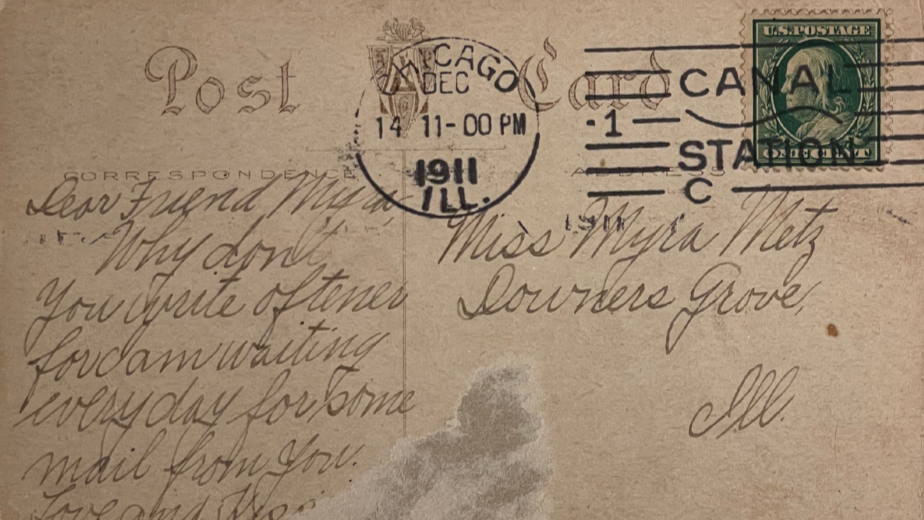 Post Card
CHICAGO
DEC
14 11-00 PM
1911
ILL.
-1
CANAL
STATION
C
U.S. POSTAGE
ONE CENT
CORRESPONDENCE
1911
Dear Friend Myra,
Why don't
you write oftener
for I am waiting
every day for some
mail from you.
Love and
Miss Myra Metz
Downers Grove,
Ill.